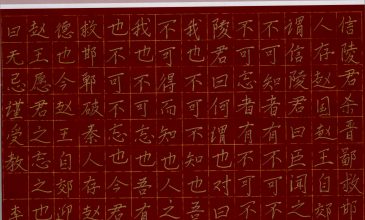 信陵君杀晋鄙救邯
人存赵国赵王自郊
谓信陵君曰臣闻之
不可知者有不可不
不可忘者有不可不
陵君曰何谓也对曰
我也不可不知也我
不可得而知也人之
我也不可忘也吾有
也不可不忘也今君
救邯郸破秦人存赵
德也今赵王自郊迎
赵王愿君之忘之也
曰无忌谨受教 李